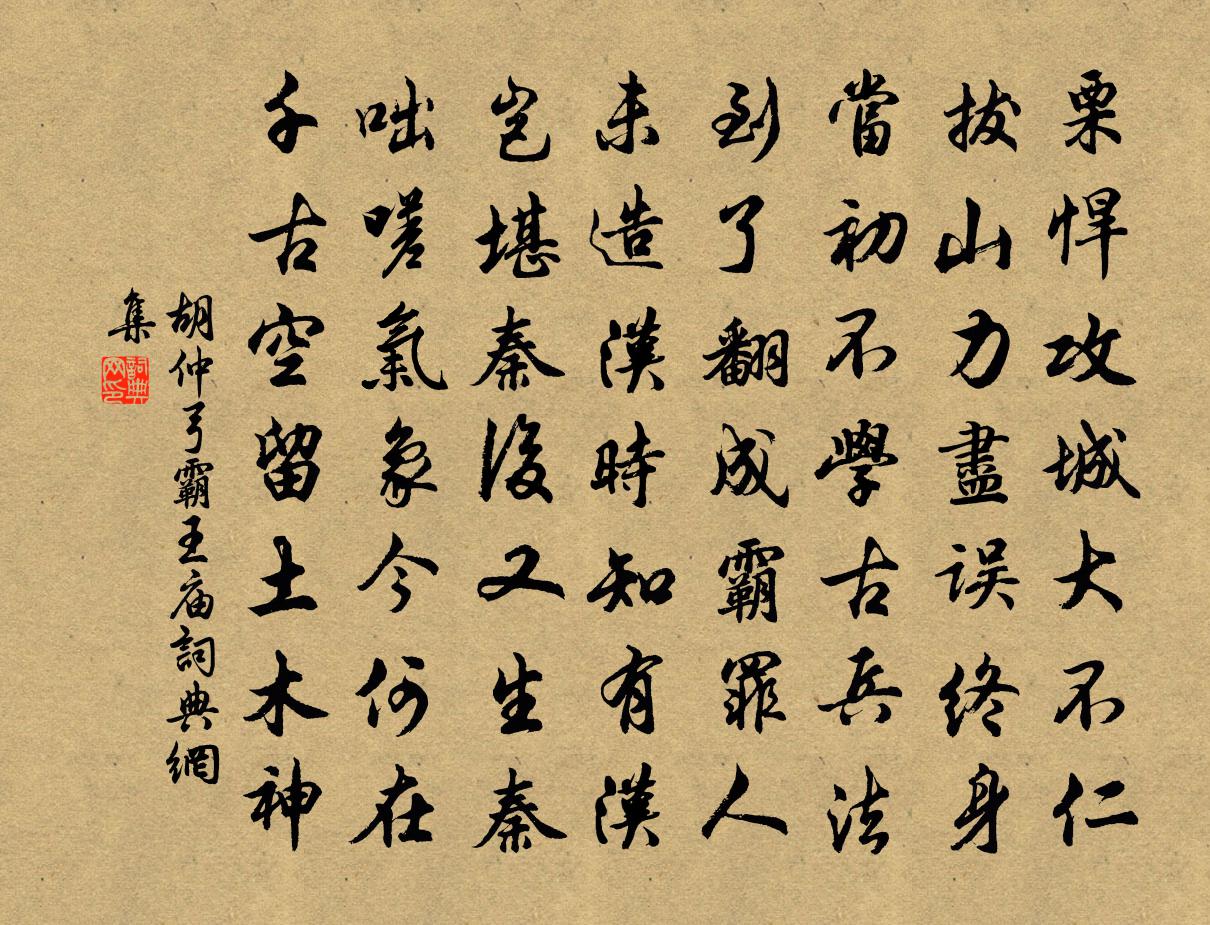 栗悍攻城大不仁
拔山力盡误終身
當初不學古兵法
到了翻成霸罪人
未造漢時知有漢
豈堪秦後又生秦
咄嗟氣象今何在
千古空留土木神
胡仲弓霸王庙詞典網
集
詞典
网印